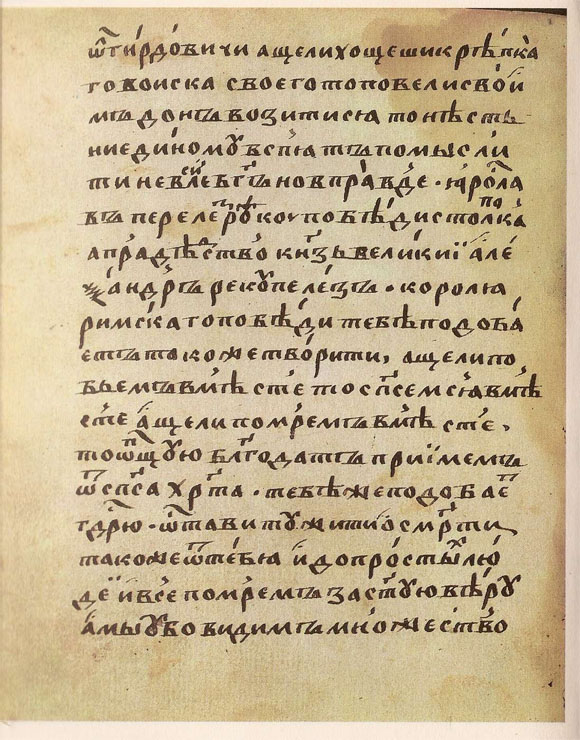 ѿгирдовичи ащелихощешикрѣпка
говоиска своего топовелисвои
мъ донъ возитисѧ тонѣсть
ниединомꙋ вспѧть помысли
ти невсилѣ бг҃ъ новправде · ꙗрⷭола
въ перелеⷥ рꙋкоу побѣди стополка
апрадѣⷣ ство кнѧⷥь великиї але
ѯандръ рекꙋ пелезъ · королѧ
римскаго побѣди тебѣ подоба
етъ такоже творити, ащелипо
бьемъ вмѣ сте то сп҃семсѧ вмѣ
сте ащели помремъ вмѣ сте,
то ѡⷠщую блгⷣодать приїмемъ
ѿ сп҃са хрⷭта · тебѣже подобаеⷮ
гдⷭрю · ѡⷭтавити житиіо смрⷮти
такоже ѿтебѧ и допростыⷯ лю
деї ивсе помремъ застꙋю вѣрꙋ
амы ꙋбо видимъ множество